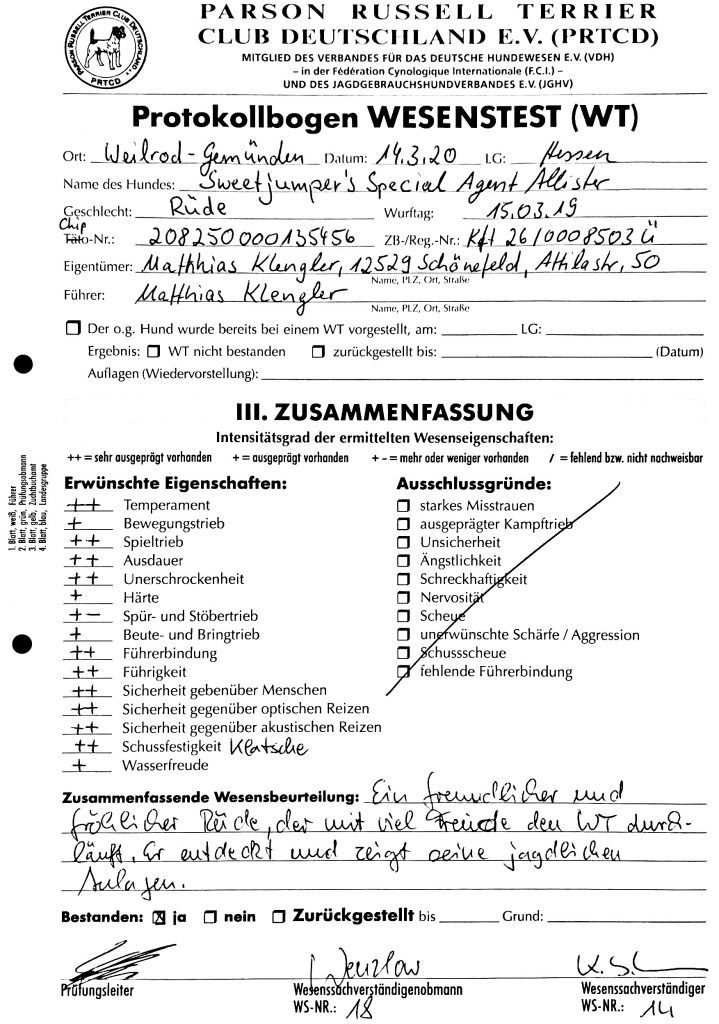 PARSON RUSSELL TERRIER CLUB DEUTSCHLAND
PRTCD
PARSON RUSSELL TERRIER
CLUB DEUTSCHLAND E.V. (PRTCD)
MITGLIED DES VERBANDES FÜR DAS DEUTSCHE HUNDEWESEN E.V. (VDH)
– in der Fédération Cynologique Internationale (F.C.I.) –
UND DES JAGDGEBRAUCHSHUNDVERBANDES E.V. (JGHV)
Protokollbogen WESENSTEST (WT)
Ort: Weilrod-Gemünden Datum: 14.3.20 LG: Hessen
Name des Hundes: Sweetjumper's Special Agent Allister
Geschlecht: Rüde Wurftag: 15.03.19
Chip
Täto-Nr.: 208250000135456 ZB-/Reg.-Nr.: Kft 26/0008503 Ü
Eigentümer: Matthias Klengler, 12529 Schönefeld, Attilastr, 50
Name, PLZ, Ort, Straße
Führer: Matthias Klengler
Name, PLZ, Ort, Straße
Der o.g. Hund wurde bereits bei einem WT vorgestellt, am: LG:
Ergebnis: WT nicht bestanden zurückgestellt bis: (Datum)
Auflagen (Wiedervorstellung):
III. ZUSAMMENFASSUNG
Intensitätsgrad der ermittelten Wesenseigenschaften:
++ = sehr ausgeprägt vorhanden + = ausgeprägt vorhanden + - = mehr oder weniger vorhanden / = fehlend bzw. nicht nachweisbar
1. Blatt, weiß, Führer
2. Blatt, grün, Prüfungsobmann
3. Blatt, gelb, Zuchtbuchamt
4. Blatt, blau, Landesgruppe
Erwünschte Eigenschaften:
++ Temperament
+ Bewegungstrieb
++ Spieltrieb
++ Ausdauer
++ Unerschrockenheit
+ Härte
+- Spür- und Stöbertrieb
+ Beute- und Bringtrieb
++ Führerbindung
++ Führigkeit
++ Sicherheit gebenüber Menschen
++ Sicherheit gegenüber optischen Reizen
++ Sicherheit gegenüber akustischen Reizen
++ Schussfestigkeit Klatsche
+ Wasserfreude
Ausschlussgründe:
starkes Misstrauen
ausgeprägter Kampftrieb
Unsicherheit
Ängstlichkeit
Schreckhaftigkeit
Nervosität
Scheue
unerwünschte Schärfe / Aggression
Schussscheue
fehlende Führerbindung
Zusammenfassende Wesensbeurteilung: Ein freundlicher und
fröhlicher Rüde, der mit viel Freude den WT durch-
läuft. Er entdeckt und zeigt seine jagdlichen
Anlagen.
Bestanden: X ja nein Zurückgestellt bis Grund:
Wenzlow
Prüfungsleiter Wesenssachverständigenobmann Wesenssachverständiger
WS-NR.: 18 WS-NR.: 14